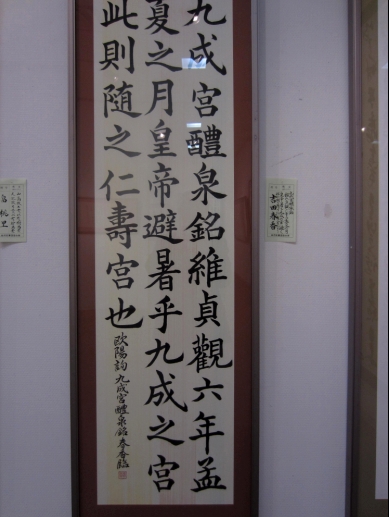 九成宮醴泉銘維貞觀六年孟
夏之月皇帝避暑乎九成之宮
此則随之仁壽宮也
欧陽詢九成宮醴泉銘春香臨
吉田春香